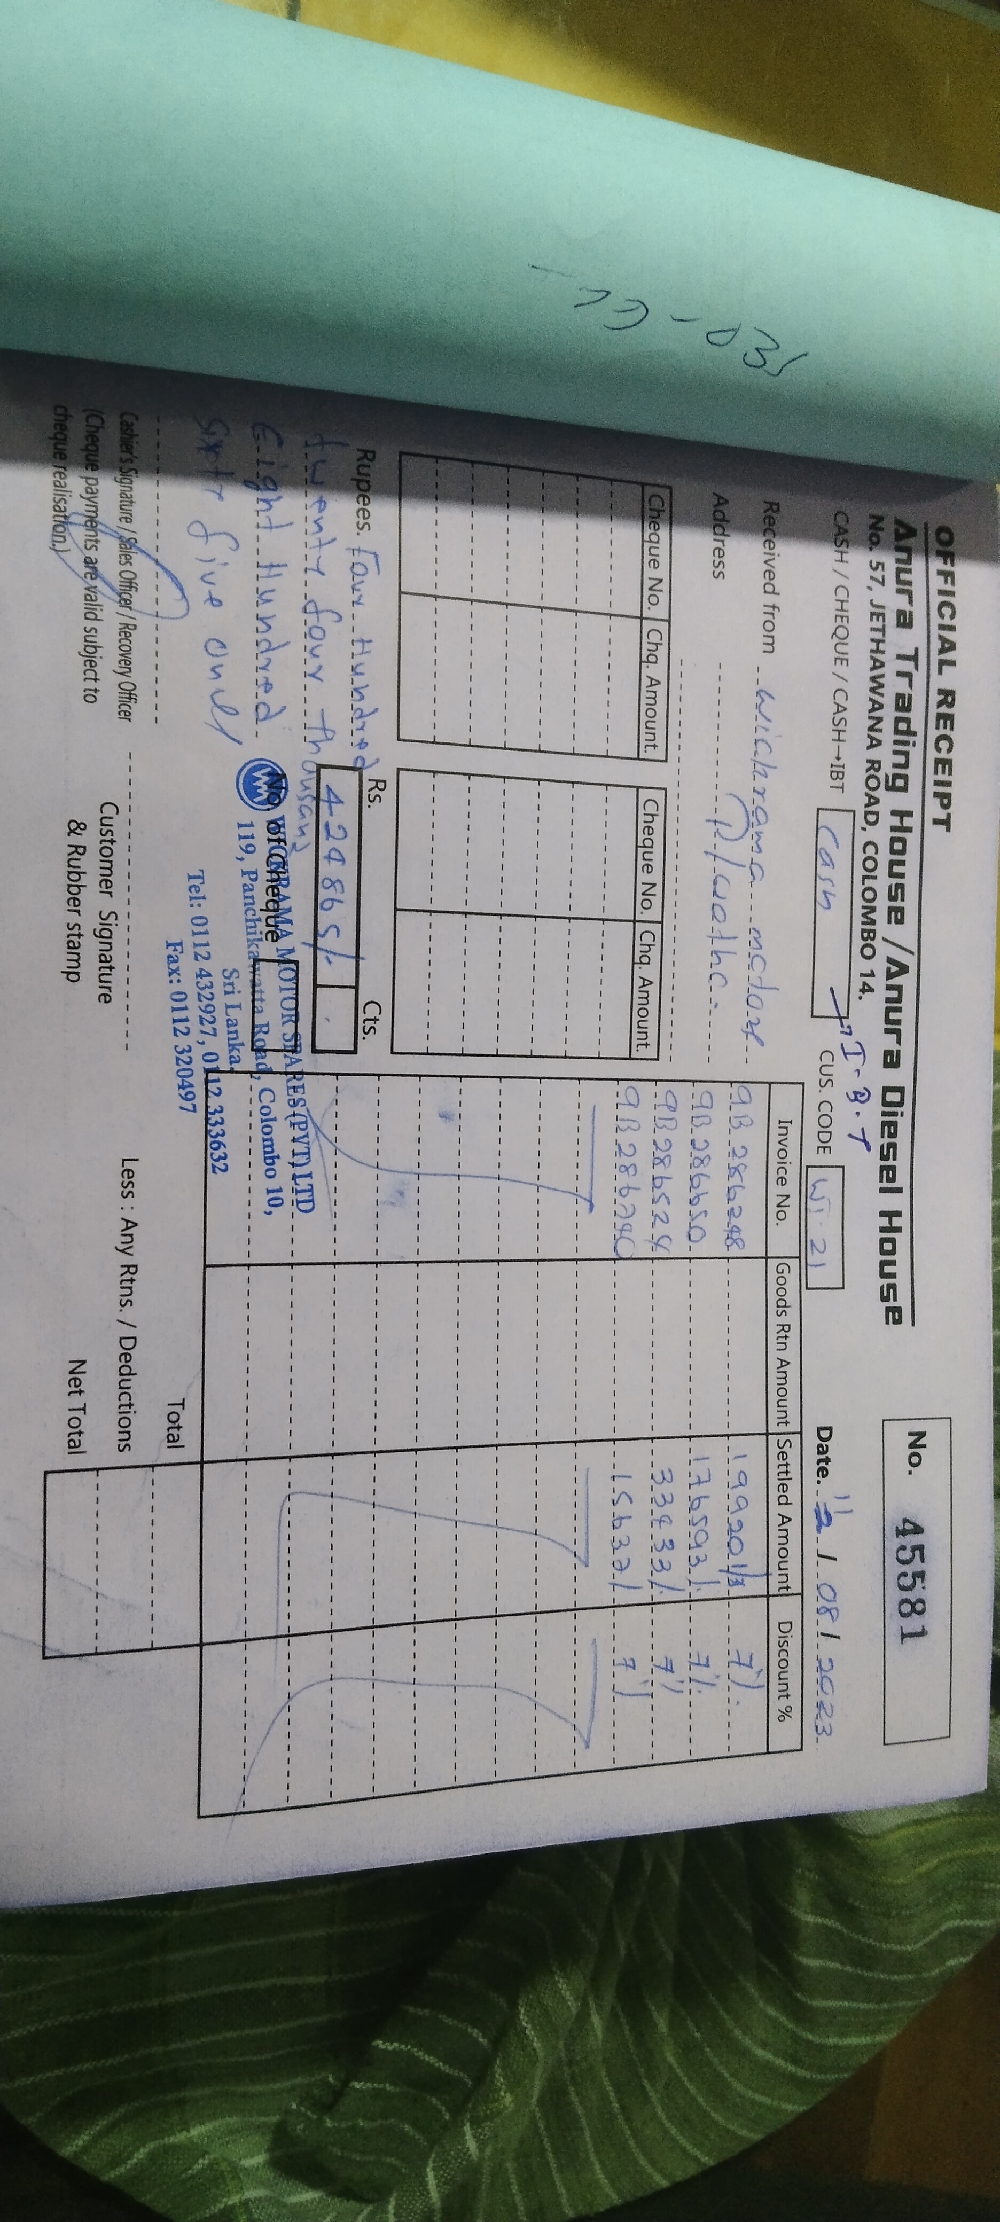 OFFICIAL RECEIPT
Anura Trading House /Anura Diesel House
No. 57, JETHAWANA ROAD, COLOMBO 14.
No. 45581
CASH / CHEQUE / CASH→IBT Cash → I.B.T
CUS. CODE Wi 21
Date. 11 / 08 / 2023
Received from Wickrama motors
Address P/watha
Cheque No. Chq. Amount. Cheque No. Chq. Amount.
Invoice No. Goods Rtn Amount Settled Amount Discount %
9B 286248 199201/= 7%
9B 286650 176593/. 7%
9B 286524 33433/. 7%
9B 286740 15637/ 7%
Rupees. Four Hundred
twenty four thousand
Eight Hundred
sixty five only
Rs. Cts.
424865/.
No. of Cheque
WICKRAMA MOTOR SPARES (PVT) LTD
119, Panchikawatta Road, Colombo 10,
Sri Lanka.
Tel: 0112 432927, 0112 333632
Fax: 0112 320497
Total
Less : Any Rtns. / Deductions
Net Total
Cashier's Signature / Sales Officer / Recovery Officer
(Cheque payments are valid subject to
cheque realisation.)
Customer Signature
& Rubber stamp